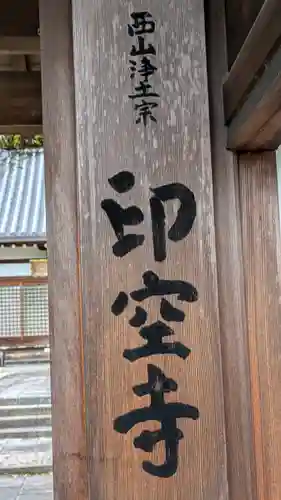 西山浄土宗
印空寺